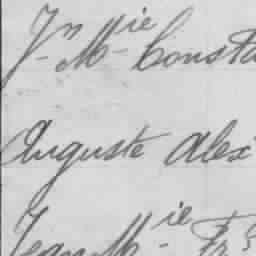 Jn Mie Consta
Auguste Alex
Jean M.ie Frs